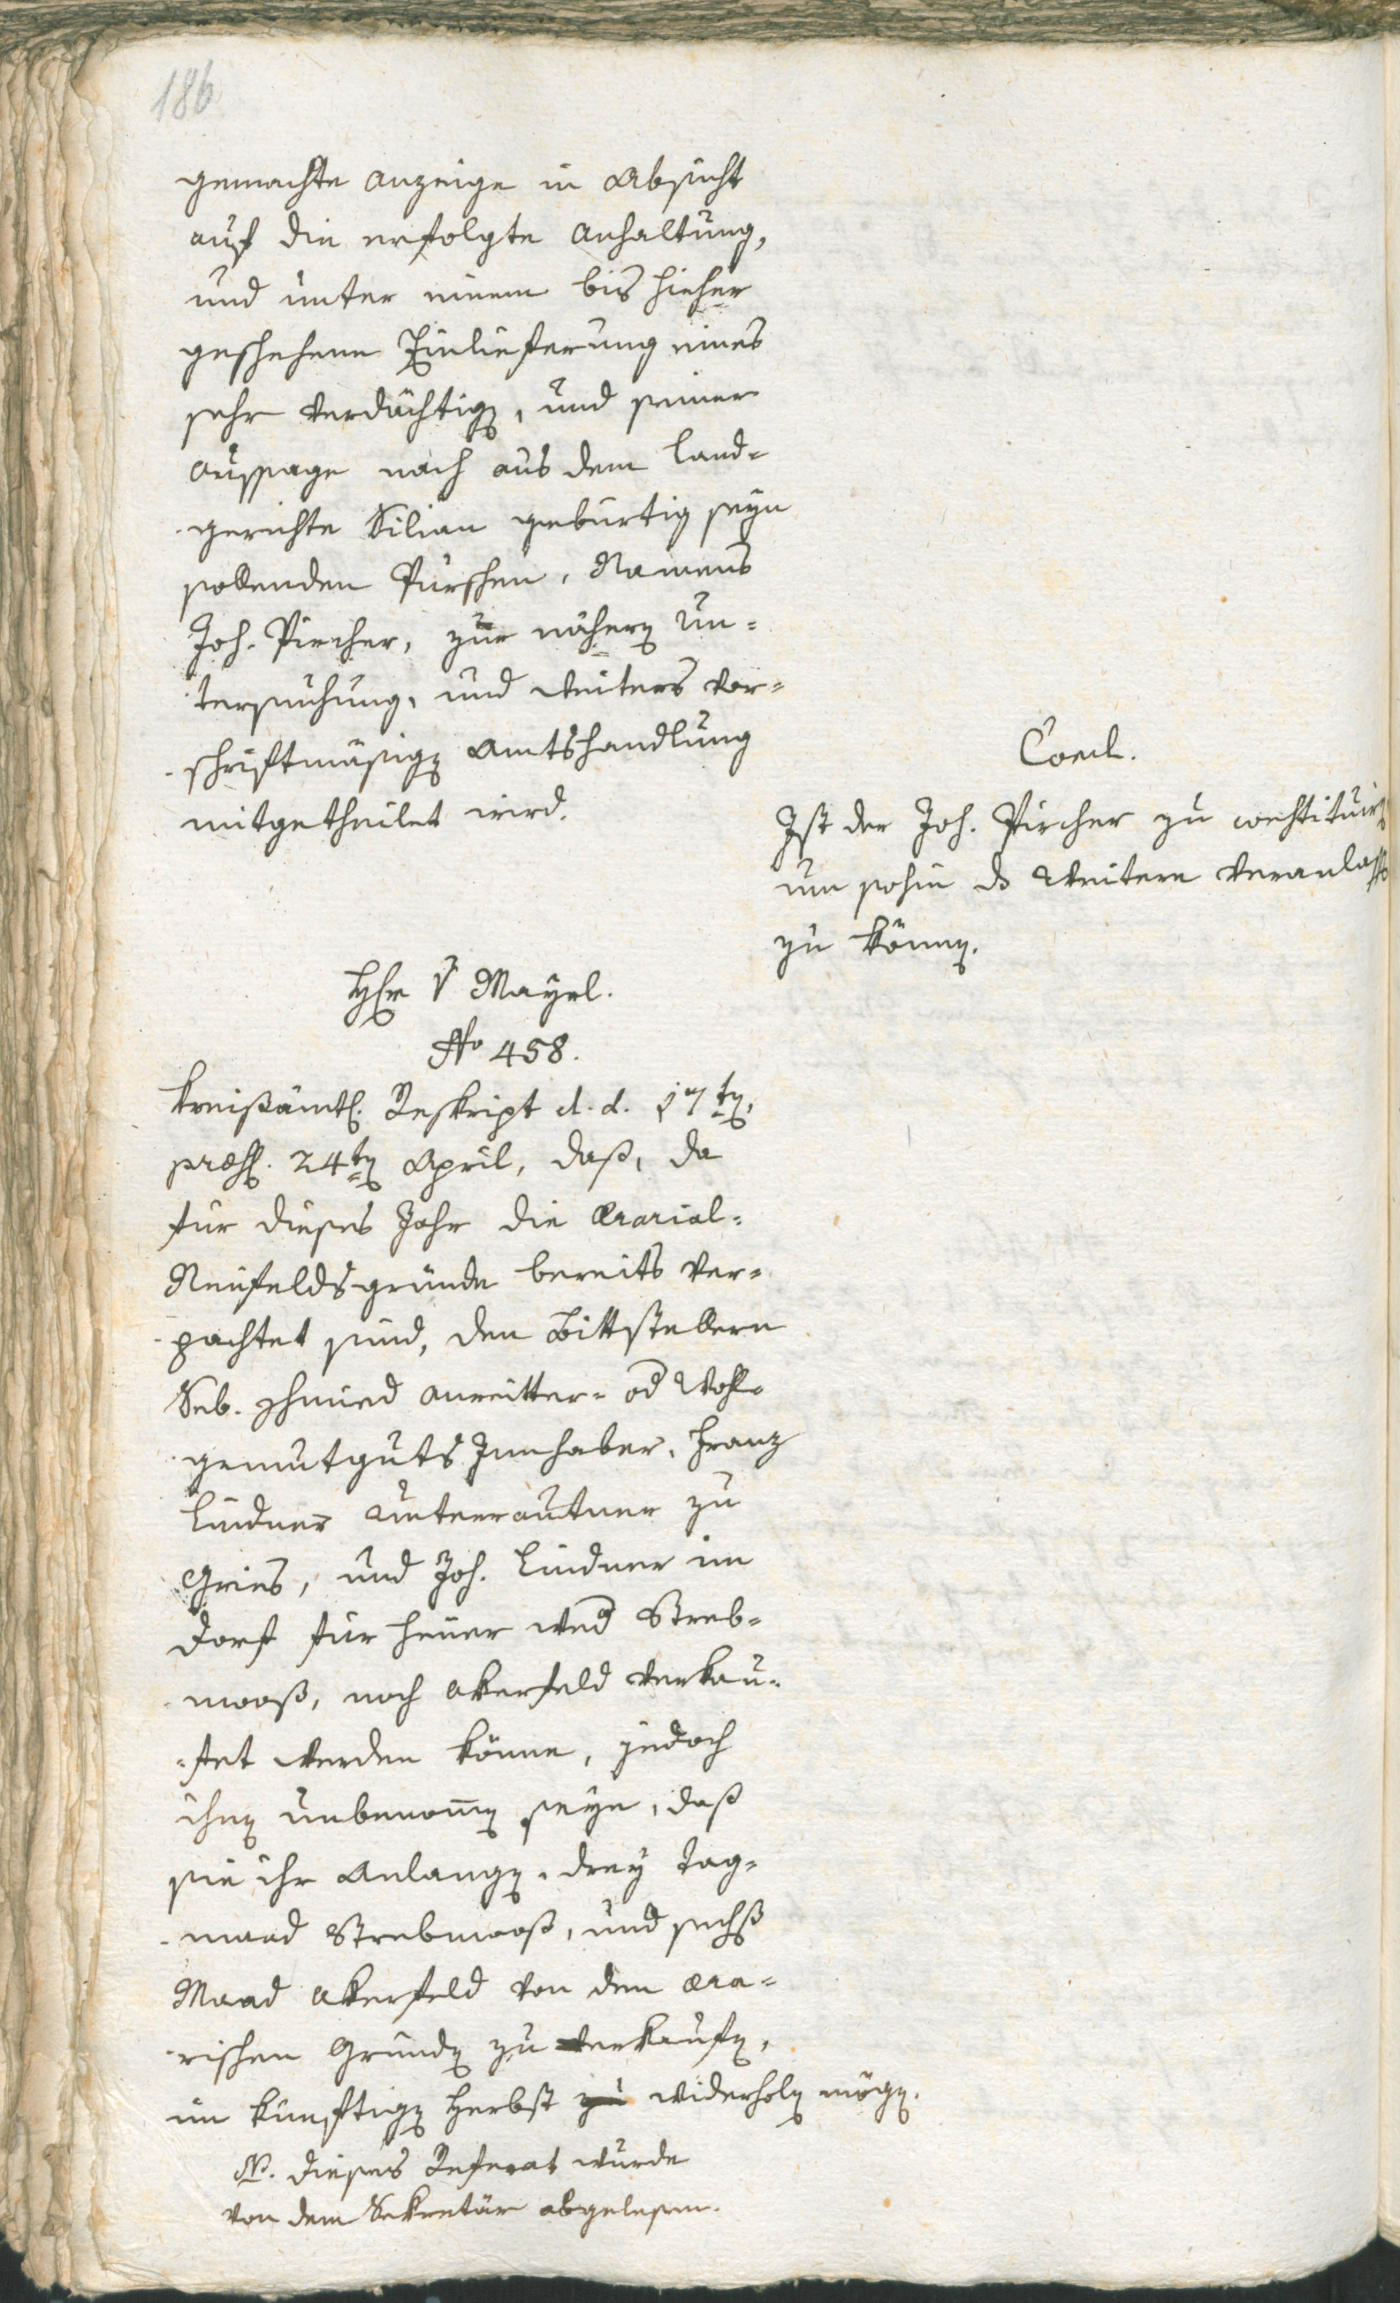 186
gemachte Anzeige in Absicht
auf die erfolgte Anhaltung,
und unter einem bis hieher
geschehene Einlieferung eines
sehr verdächtigen, und seiner
Aussage nach aus dem Land-
gerichte Silian gebürtig seyn
sollenden Purschen, Namens
Joh. Pircher, zur nähern Un-
tersuchung, und weiters vor-
schriftmäsigen Amtshandlung
mitgetheilet wird.
Concl.
Ist der Joh. Pircher zu constituirn
um sohin ds Weitere veranlassen
zu können.
Hr v Mayrl.
No 458.
Kreisämtl. Reskript d. d. 17ten,
præs. 24ten April, daß, da
für dieses Jahr die Ærarial-
Neufeldsgründe bereits ver-
pachtet sind, den Bittstellern
Seb. Schmied Anreitter- od Wohl-
gemutguts Innhaber, Franz
Lindner Unterrautner zu
Gries, und Joh. Lindner im
Dorf für heuer wed Streb-
mooß, noch Akerfeld verkau-
fet werden könne, jedoch
ihnen unbenommen seye, daß
sie ihr Anlangen, drey Tag-
maad Strebmooß, und sechß
Maad Akerfeld von den æra-
rischen Gründen zu verkaufen,
im künftigen Herbst zu widerholen mögen.
NB. Dieses Referat wurde
von dem Sekretär abgelesen.